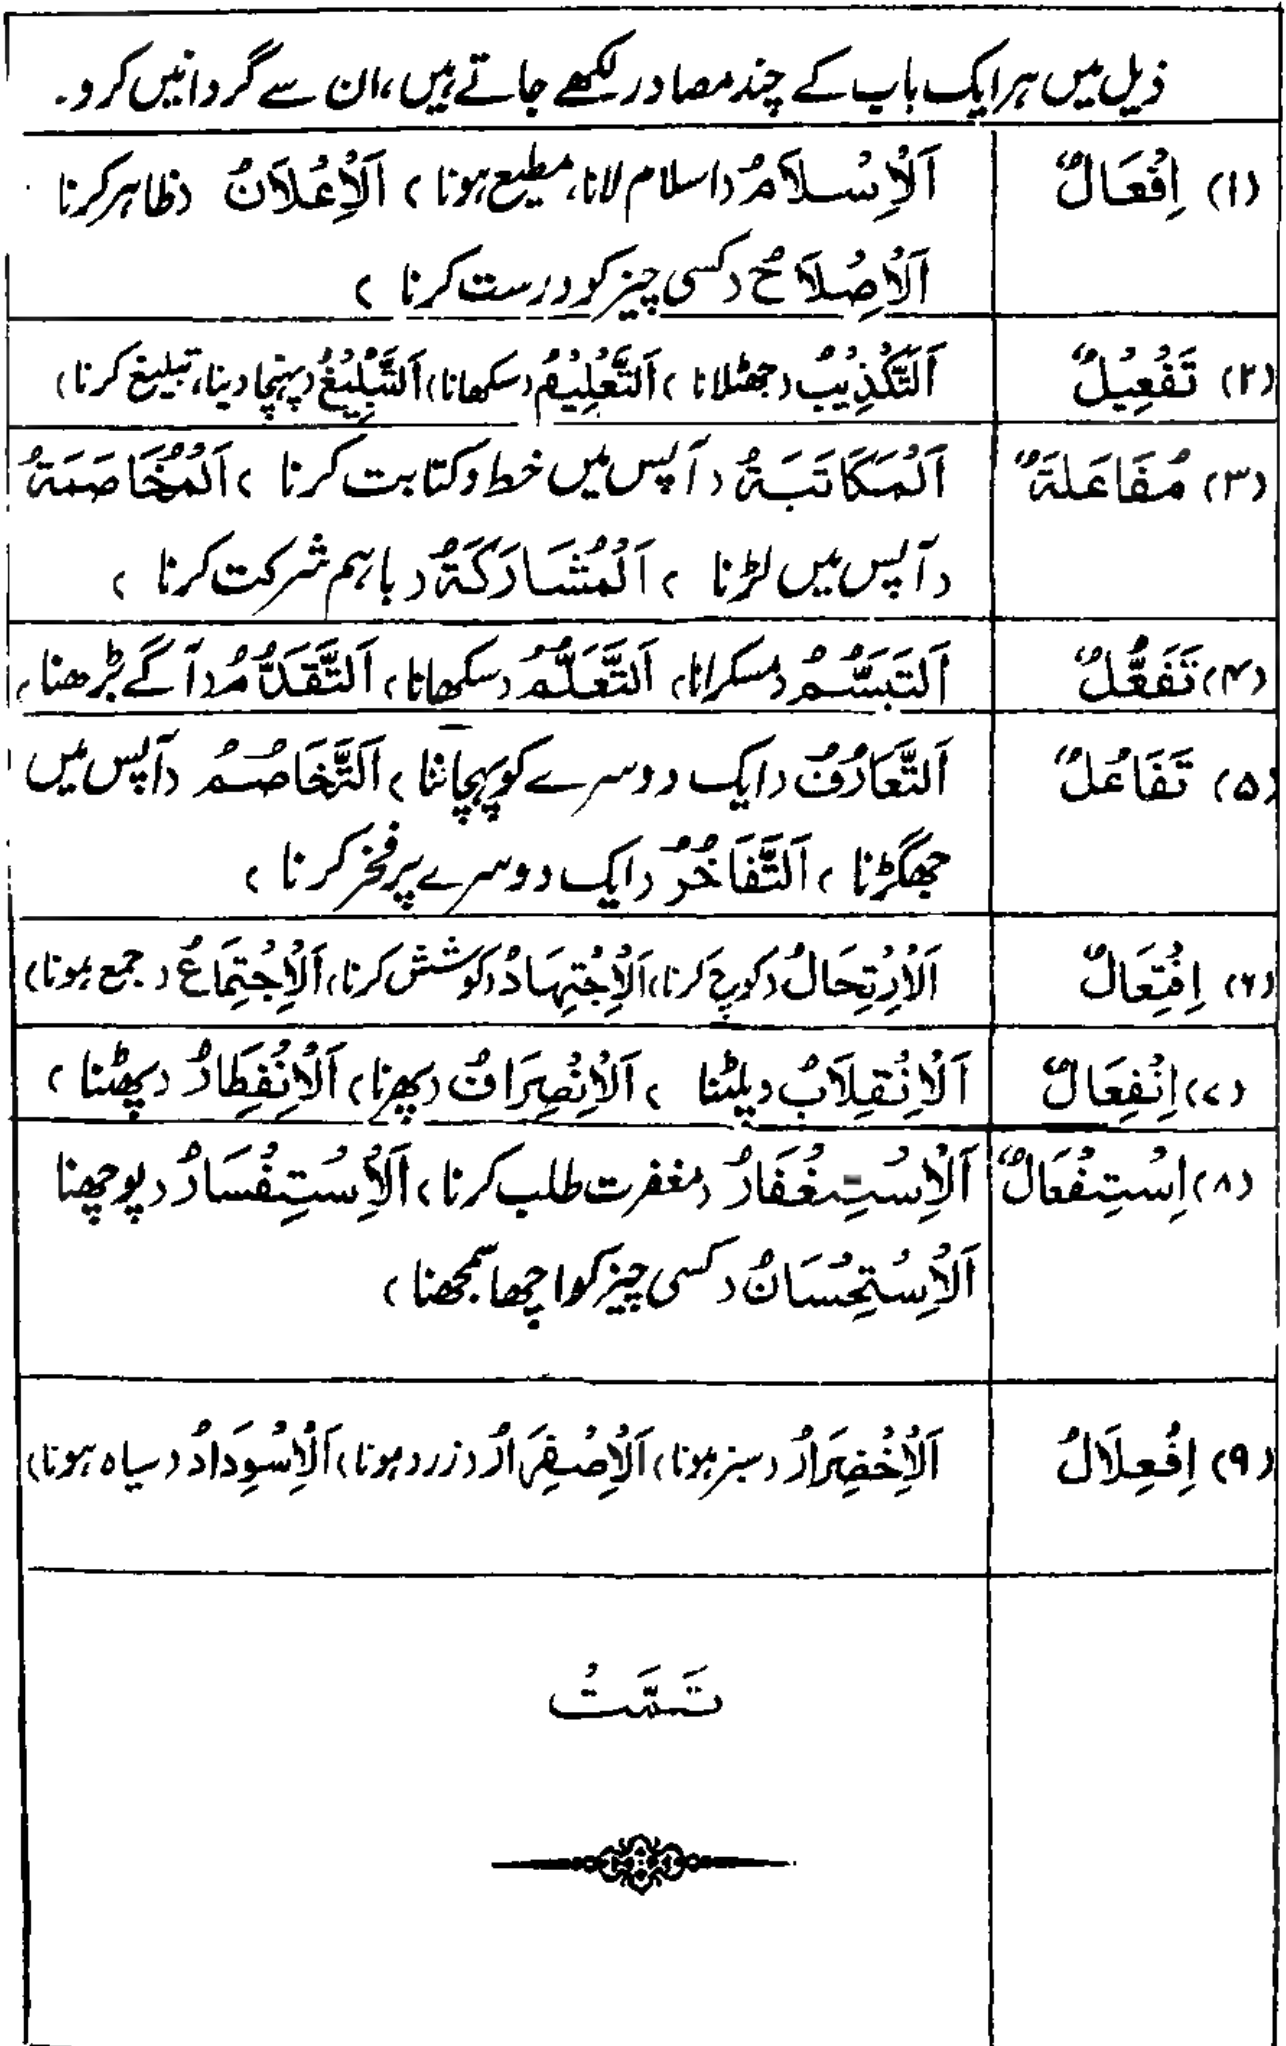 ذیل میں ہر ایک باب کے چند مصادر لکھے جاتے ہیں، ان سے گردانیں کرو۔
(۱) اِفْعَالٌ اَلْاِسْلَامُ (اسلام لانا، مطیع ہونا) اَلْاِعْلَانُ (ظاہر کرنا
اَلْاِصْلَاحُ (کسی چیز کو درست کرنا)
(۲) تَفْعِیْلٌ اَلتَّکْذِیْبُ (جھٹلانا) اَلتَّعْلِیْمُ (سکھانا) اَلتَّبْلِیْغُ (پہنچا دینا، تبلیغ کرنا)
(۳) مُفَاعَلَۃٌ اَلْمُکَاتَبَۃُ (آپس میں خط وکتابت کرنا) اَلْمُخَاصَمَۃُ
(آپس میں لڑنا) اَلْمُشَارَکَۃُ (باہم شرکت کرنا)
(۴) تَفَعُّلٌ اَلتَبَسُّمُ (مسکرانا) اَلتَّعَلُّمُ (سکھانا) اَلتَّقَدُّمُ (آگے بڑھنا)
(۵) تَفَاعُلٌ اَلتَّعَارُفُ (ایک دوسرے کو پہچاننا) اَلتَّخَاصُمُ (آپس میں
جھگڑنا) اَلتَّفَاخُرُ (ایک دوسرے پر فخر کرنا)
(۶) اِفْتِعَالٌ اَلْاِرْتِحَالُ (کوچ کرنا) اَلْاِجْتِہَادُ (کوشش کرنا) اَلْاِجْتِمَاعُ (جمع ہونا)
(۷) اِنْفِعَالٌ اَلْاِنْقِلَابُ (پلٹنا) اَلْاِنْصِرَافُ (پھرنا) اَلْاِنْفِطَارُ (پھٹنا)
(۸) اِسْتِفْعَالٌ اَلْاِسْتِغْفَارُ (مغفرت طلب کرنا) اَلْاِسْتِفْسَارُ (پوچھنا
اَلْاِسْتِحْسَانُ (کسی چیز کو اچھا سمجھنا)
(۹) اِفْعِلَالٌ اَلْاِخْضِرَارُ (سبز ہونا) اَلْاِصْفِرَارُ (زرد ہونا) اَلْاِسْوِدَادُ (سیاہ ہونا)
تَمَّتْ